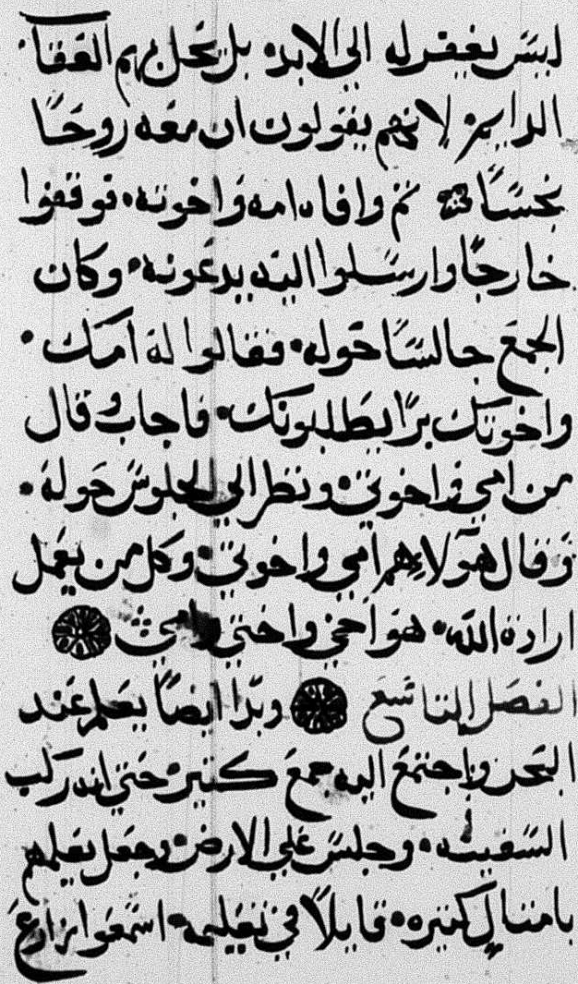 ليس يغفر له الي الابد۰ بل يحل بهم العقاب
الدايم۰ لانهم يقولون ان معه روحًا
نجسًا ثم وافاه امه واخوته۰ فوقفوا
خارجًا وارسلوا اليه يدعونه۰ وكان
الجمع جالسًا حوله۰ فقالوا له امك۰
واخوتك برًا يطلبونك۰ فاجاب وقال
من امي واخوتي۰ ونظر الي الجلوس حوله۰
وقال هولاء هم امي واخوتي۰ وكل من يعمل
ارادة الله۰ هو اخي واختي وامي
الفصل التاسع وبدا ايضًا يعلم عند
البحر واجتمع اليه جمع كثير۰ حتي انه ركب
السفينه۰ وجلس علي الارض۰ وجعل يعلمهم
بامثال كثيره۰ قايلًا في تعليمه۰ اسمعوا زارع